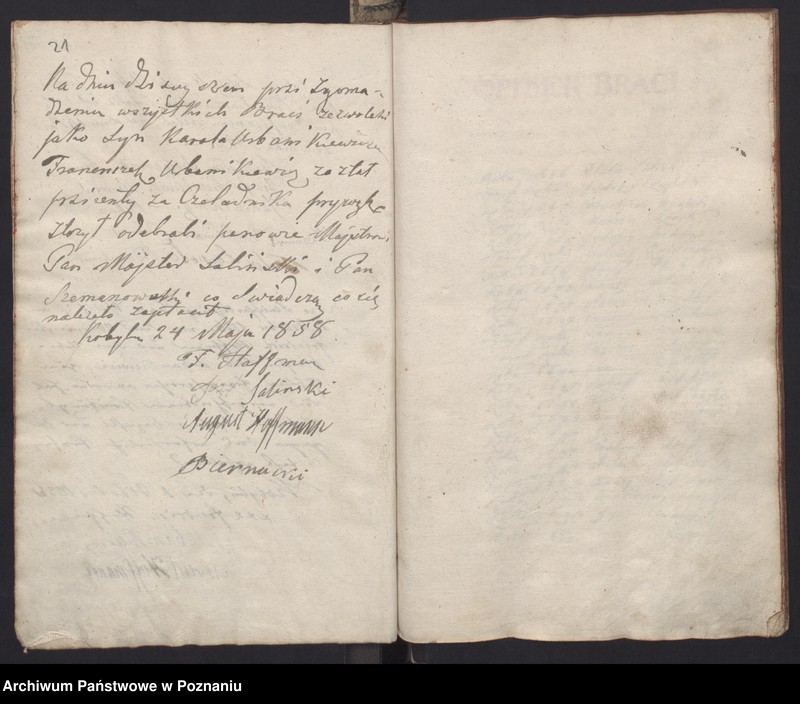 21
Na dniu dzisiejszem przi zgroma-
dzeniu wszystkich Braci zezwolili
jako Syn Karola Urbanikiewicza
Franciszek Urbanikiewicz został
przicenty za Czeladnika przyrzek
złozył odebrali panowie Majstrowi
Pan Majster Saliński i Pan
Szemanowski co Swiadczą co się
nalezało zapłacił
Kobylin 24 Maja 1858
F. Hoffman
Saliński
August Hoffmann
Biernacki
SPISEK BRACI
Archiwum Państwowe w Poznaniu